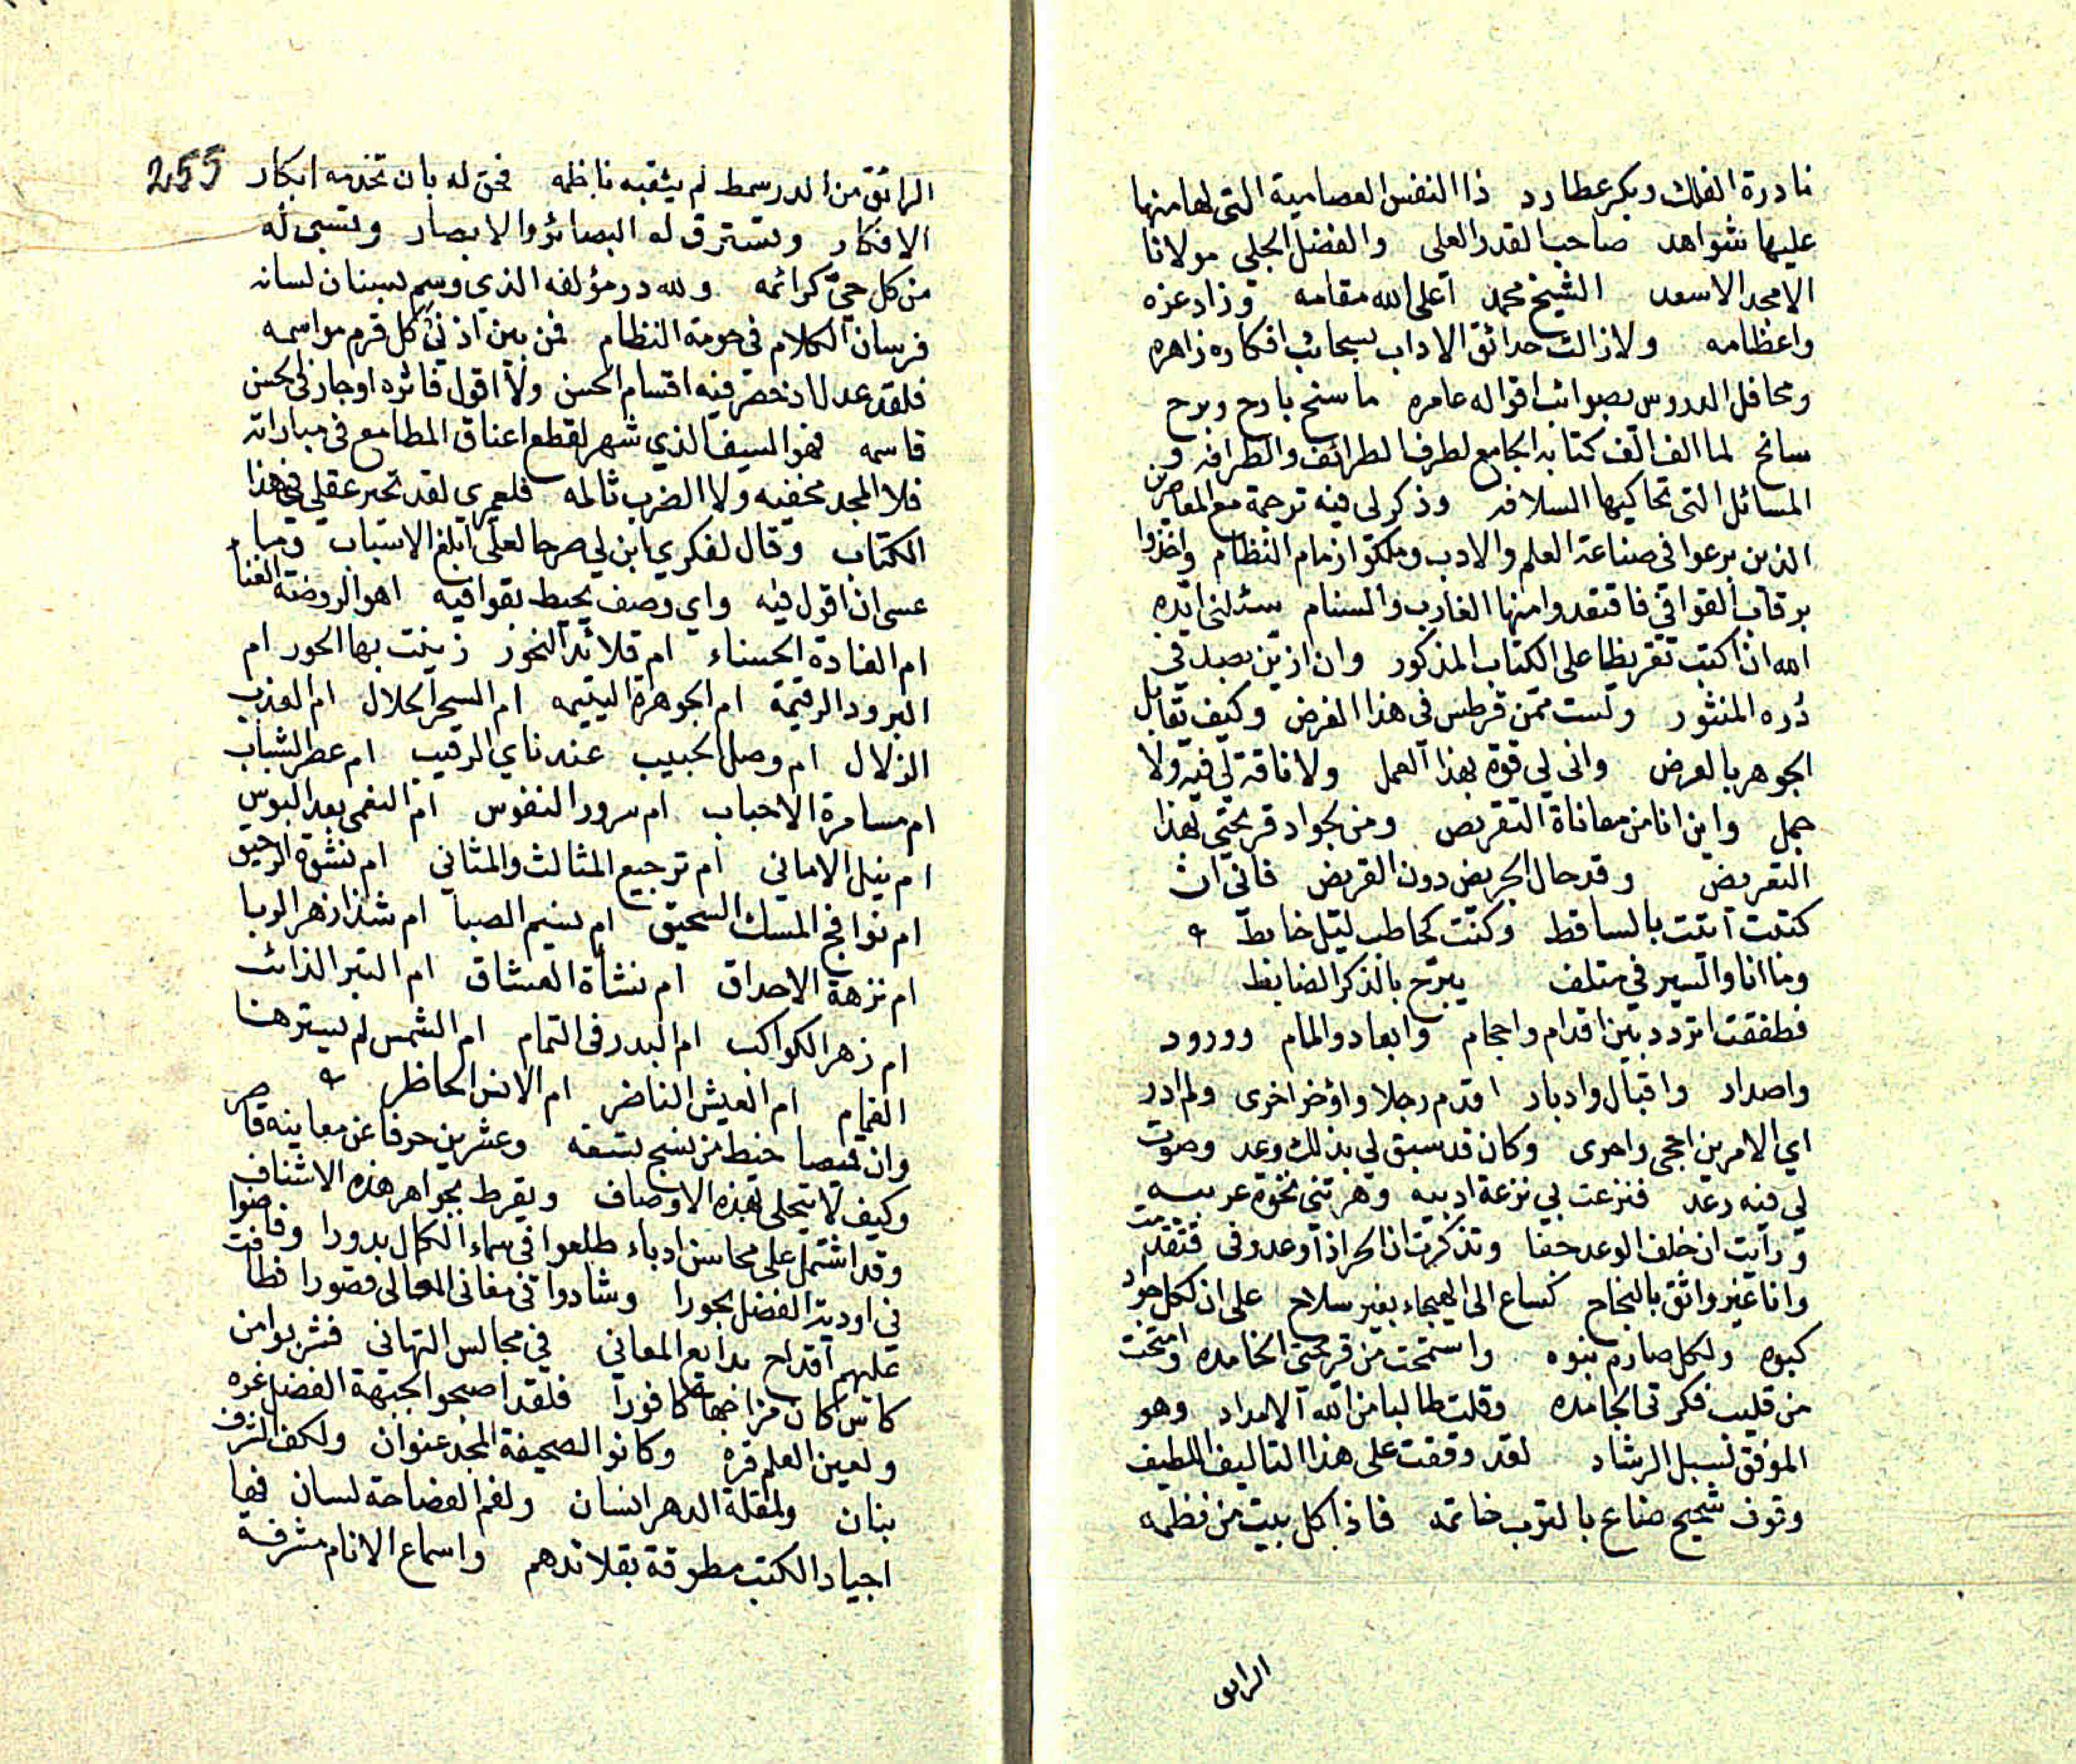 نادرة الفلك وبكر عطارد ذا النفس العصامية التي لها منها
عليها شواهد صاحب القدر العلي والفضل الجلي مولانا
الامجد الاسعد الشيخ محمد اعلى الله مقامه وزاد عزه
واعظامه ولازالت حدائق الاداب بسحائب افكاره زاهره
ومحافل الدروس بصوائب اقواله عامره ما سنح بارح وبرح
سانح لما الف الف كتابه الجامع لطرف الطرائف والظرافه و
المسائل التي تحاكيها السلافه وذكر لي فيه ترجمة مع المعاصرين
الذين برعوا في صناعة العلم والادب وملكوا زمام النظام واخذوا
برقاب القوافي فاقتعدوا منها الغارب والسنام سئلني ايده
الله ان اكتب تقريظا على الكتاب المذكور وان ازين بصدفي
دُره المنثور ولست ممن قرطس في هذا الغرض وكيف تقابل
الجوهر بالعرض وانى لي قوة بهذا العمل ولا ناقة لي فيه ولا
جمل واين انا من معاناة التقريض ومن لجواد قريحتي بهذا
التعريض وقد حال الجريض دون القريض فاني ان
كتبت اتيت بالساقط وكنت كحاطب ليل خابط
وما انا والسير في متلف يبرّح بالذكر الضابط
فطفقت اتردد بين اقدام واحجام وابعاد والمام وورود
واصدار واقبال وادبار اقدم رجلا واؤخر اخرى ولم ادر
اي الامرين احجى واحرى وكان قد سبق لي بذلك وعد وصوت
لي فيه رعد فنزعت بي نزعة ادبيه وهزتني نخوة عربيه
ورأيت ان خلف الوعد جفا وتذكرت ان الحر اذا وعد وفى فتقدمت
وانا غير واثق بالنجاح كساع الى الهيجاء بغير سلاح على ان لكل جواد
كبوه ولكل صارم نبوه واستمحت من قريحتي الخامده وامتحت
من قليب فكرتي الجامده وقلت طالبا من الله الامداد وهو
الموفق لسبل الرشاد لقد وقفت على هذا التاليف اللطيف
وقوف شحيح ضاع بالترب خاتمه فاذا كل بيت من نظمه
الرايق
255
الرائق من الدر سمط لم يثقبه ناظمه فحق له بان تخدمه ابكار
الافكار وتسترق له البصائر والابصار وتسبى له
من كل حيّ كرائمه ولله در مؤلفه الذي وسم بسنان لسانه
فرسان الكلام في حومة النظام فمن بين اذني كل قرم مواسمه
فلقد عدل اذ حضر فيه اقسام الحسن ولا اقول فاتره او جار في الحسن
قاسمه فهو السيف الذي شهر لقطع اعناق المطامع في مباراته
فلا المجد مخفيه ولا الضرب ثالمه فلعمري لقد تحير عقلي في هذا
الكتاب وقال لفكري ابن لي صرحا لعلي ابلغ الاسباب وما
عسى ان اقول فيه واي وصف يحيط بقوافيه اهو الروضة الغنا
ام الغادة الحسناء ام قلائد النحور زينت بها الحور ام
البرود الرقيمة ام الجوهرة اليتيمه ام السحر الحلال ام العذب
الزلال ام وصل الحبيب عند ناي الرقيب ام عصر الشباب
ام مسامرة الاحباب ام سرور النفوس ام النعمى بعد البوس
ام نيل الاماني ام ترجيع المثالث والمثاني ام نشوة الرحيق
ام نوافج المسك السحيق ام نسيم الصبا ام شذا زهر الربا
ام نزهة الاحداق ام نشأة العشاق ام التبر الذائب
ام زهر الكواكب ام البدر في التمام ام الشمس لم يسترها
الغمام ام العيش الناضر ام الانس الحاظر
وان قميصا خيط من نسج تسعه وعشرين حرفا عن معاينه قاصر
وكيف لا يتحلى بهذه الاوصاف ويقرط بجواهر هذه الاشناف
وقد اشتمل على محاسن ادباء طلعوا في سماء الكمال بدورا وفاضوا
في اودية الفضل بحورا وشادوا في مغاني المعالي قصورا فطافت
عليهم اقداح بدايع المعاني في مجالس التهاني فشربوا من
كاس كان مزاجها كافورا فلقد اصبحوا لجبهة الفضل غره
ولعين العلم قره وكانوا لصحيفة المجد عنوان ولكف الشرف
بنان ولمقلة الدهر انسان ولفم الفصاحة لسان فها
اجياد الكتب مطوقة بقلائدهم واسماع الانام مشرفة